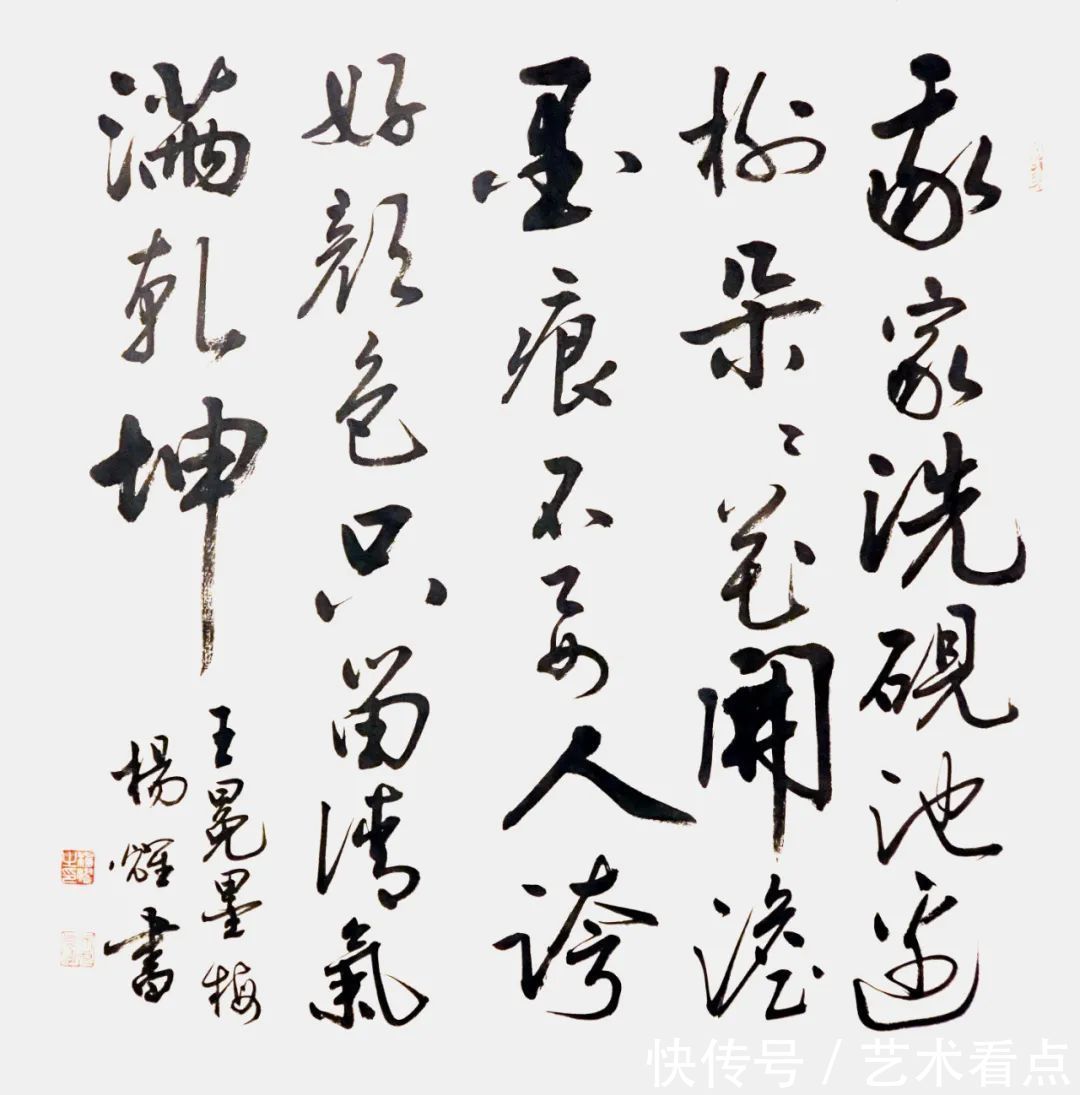 我家洗硯池邊
樹朵々花開澹
墨痕不要人誇
好顏色只留清氣
滿乾坤
王冕墨梅
楊耀書
快传号 / 艺术看点